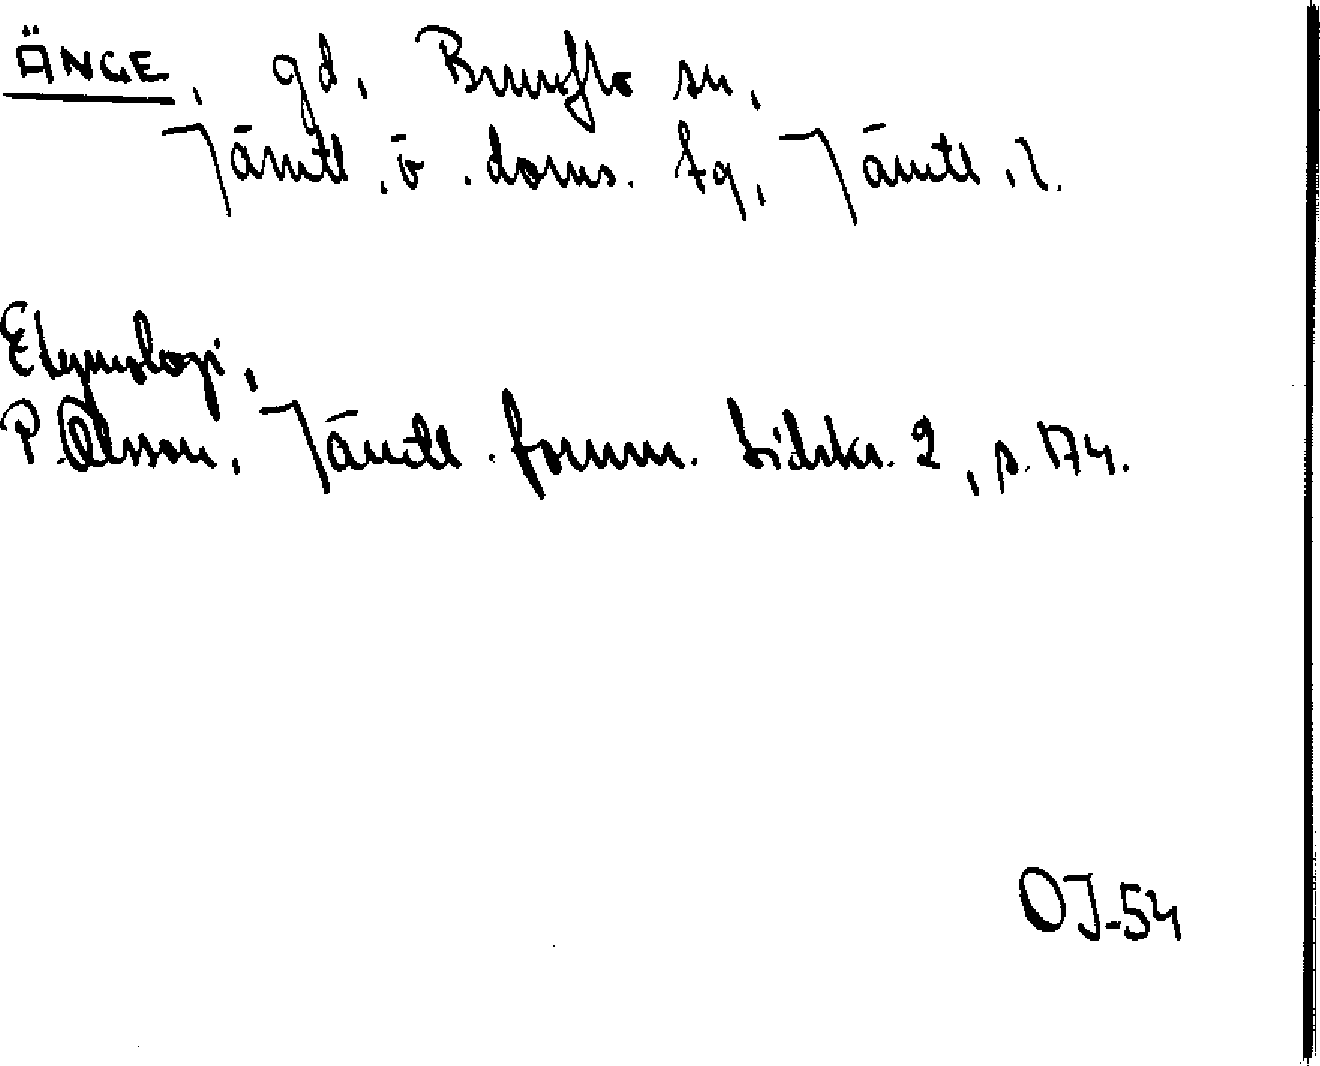 ÄNGE, gd, Brunflo sn,
Jämtl. ö. doms. tg, Jämtl. l.
Etymologi,
P. Olsson, Jämtl. fornm. tidskr. 2, s. 174.
OJ-54